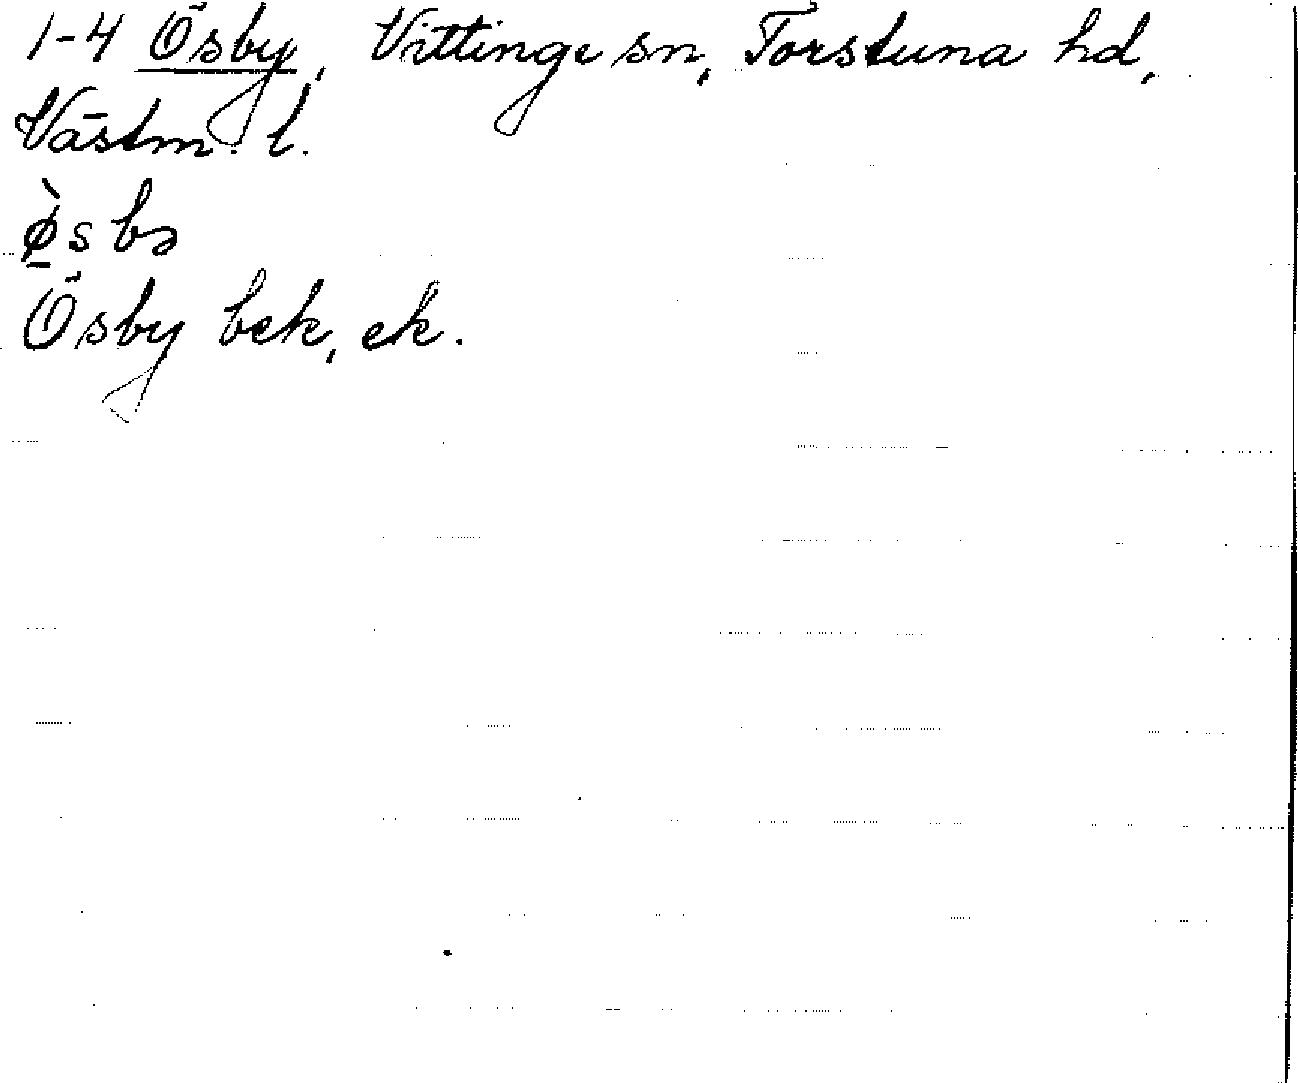 1-4 Ösby, Vittinge sn, Torstuna hd,
Västm. l.
ø̱̀sbə
Ösby bek, ek.